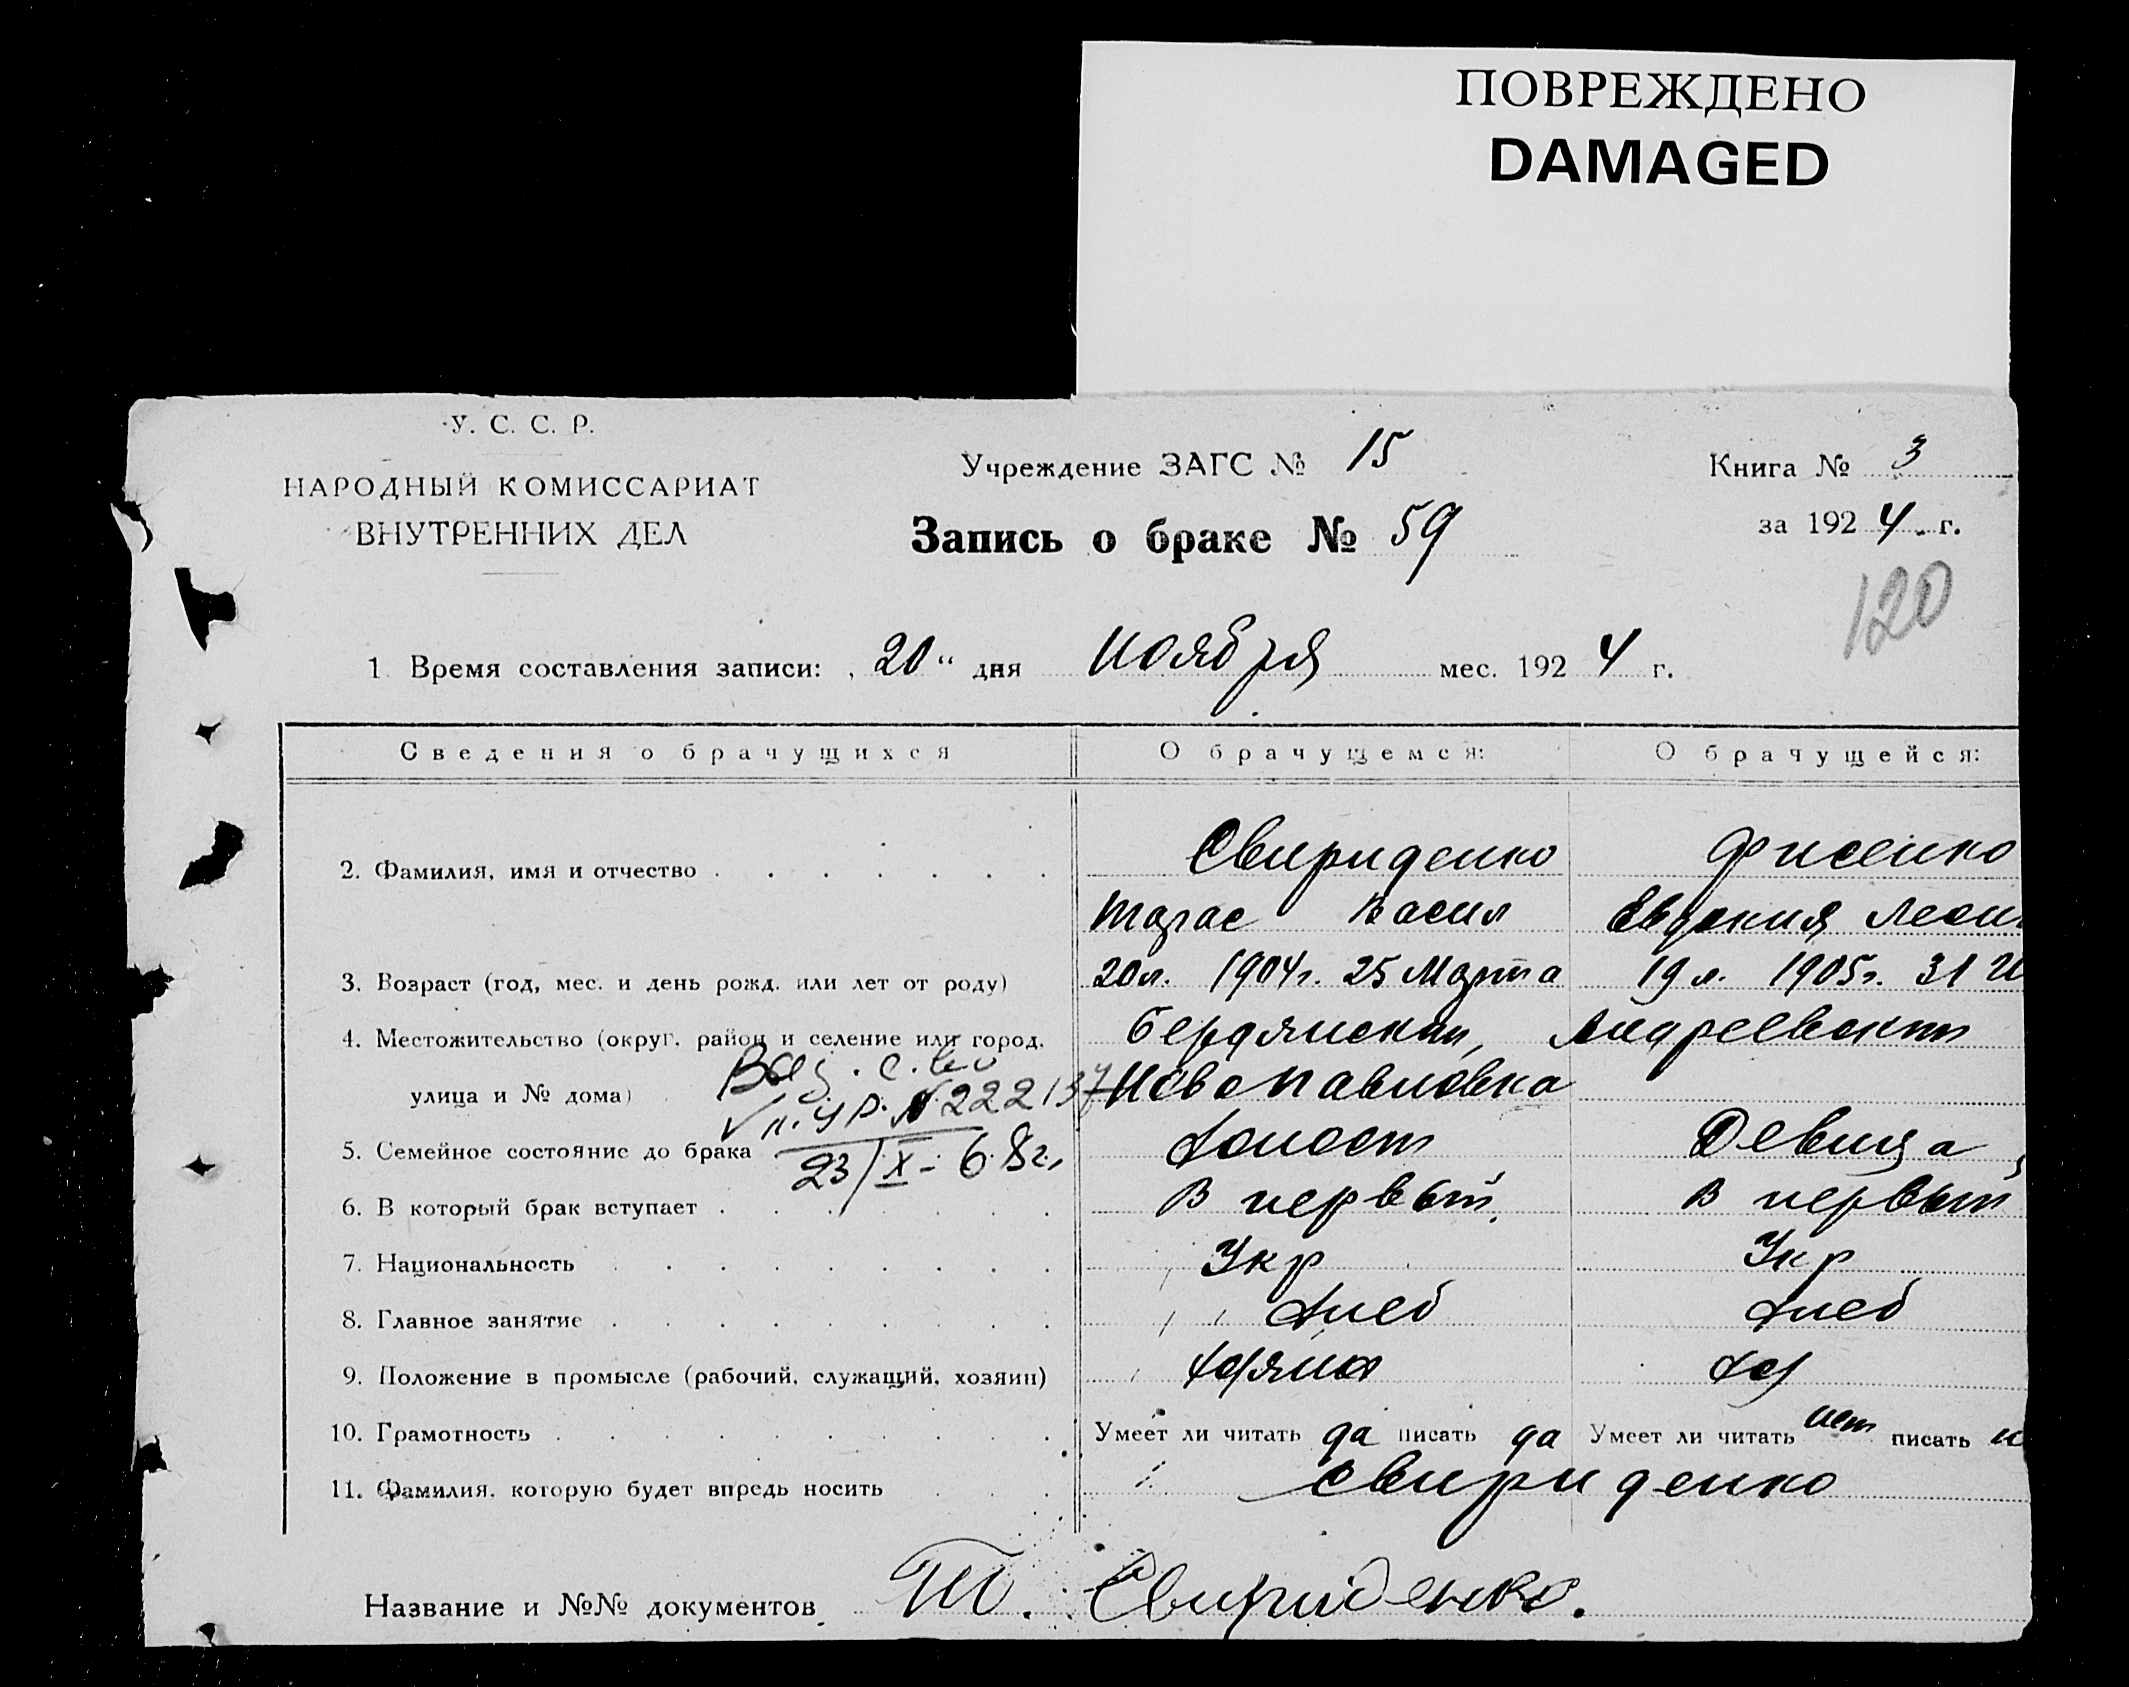 ПОВРЕЖДЕНО
DAMAGED
У. С. С. Р.
НАРОДНЫЙ КОМИССАРИАТ
ВНУТРЕННИХ ДЕЛ
Учреждение ЗАГС № 15
Книга № 3
Запись о браке № 59
за 1924 г.
120
1 Время составления записи: „20“ дня ноября мес. 1924 г.
Сведения о брачущихся О брачущемся: О брачущейся:
2. Фамилия, имя и отчество Свириденко Фисенко
Тарас Васил Евдокия Леон
3. Возраст (год, мес. и день рожд. или лет от роду) 20л. 1904г. 25 Марта 19 л. 1905г. 31 И
4. Местожительство (округ, район и селение или город, Бердянский, Андреевский
улица и № дома) Новопавловка
№ 222137
5. Семейное состояние до брака Холост Девица
23/X-68г.
6. В который брак вступает В первый. В первый
7. Национальность Укр Укр
8. Главное занятие Хлеб Хлеб
9. Положение в промысле (рабочий, служащий, хозяин) Хозяин Хоз
10. Грамотность Умеет ли читать да писать да Умеет ли читать нет писать н
11. Фамилия, которую будет впредь носить Свириденко
Название и №№ документов Т. Свириденко.